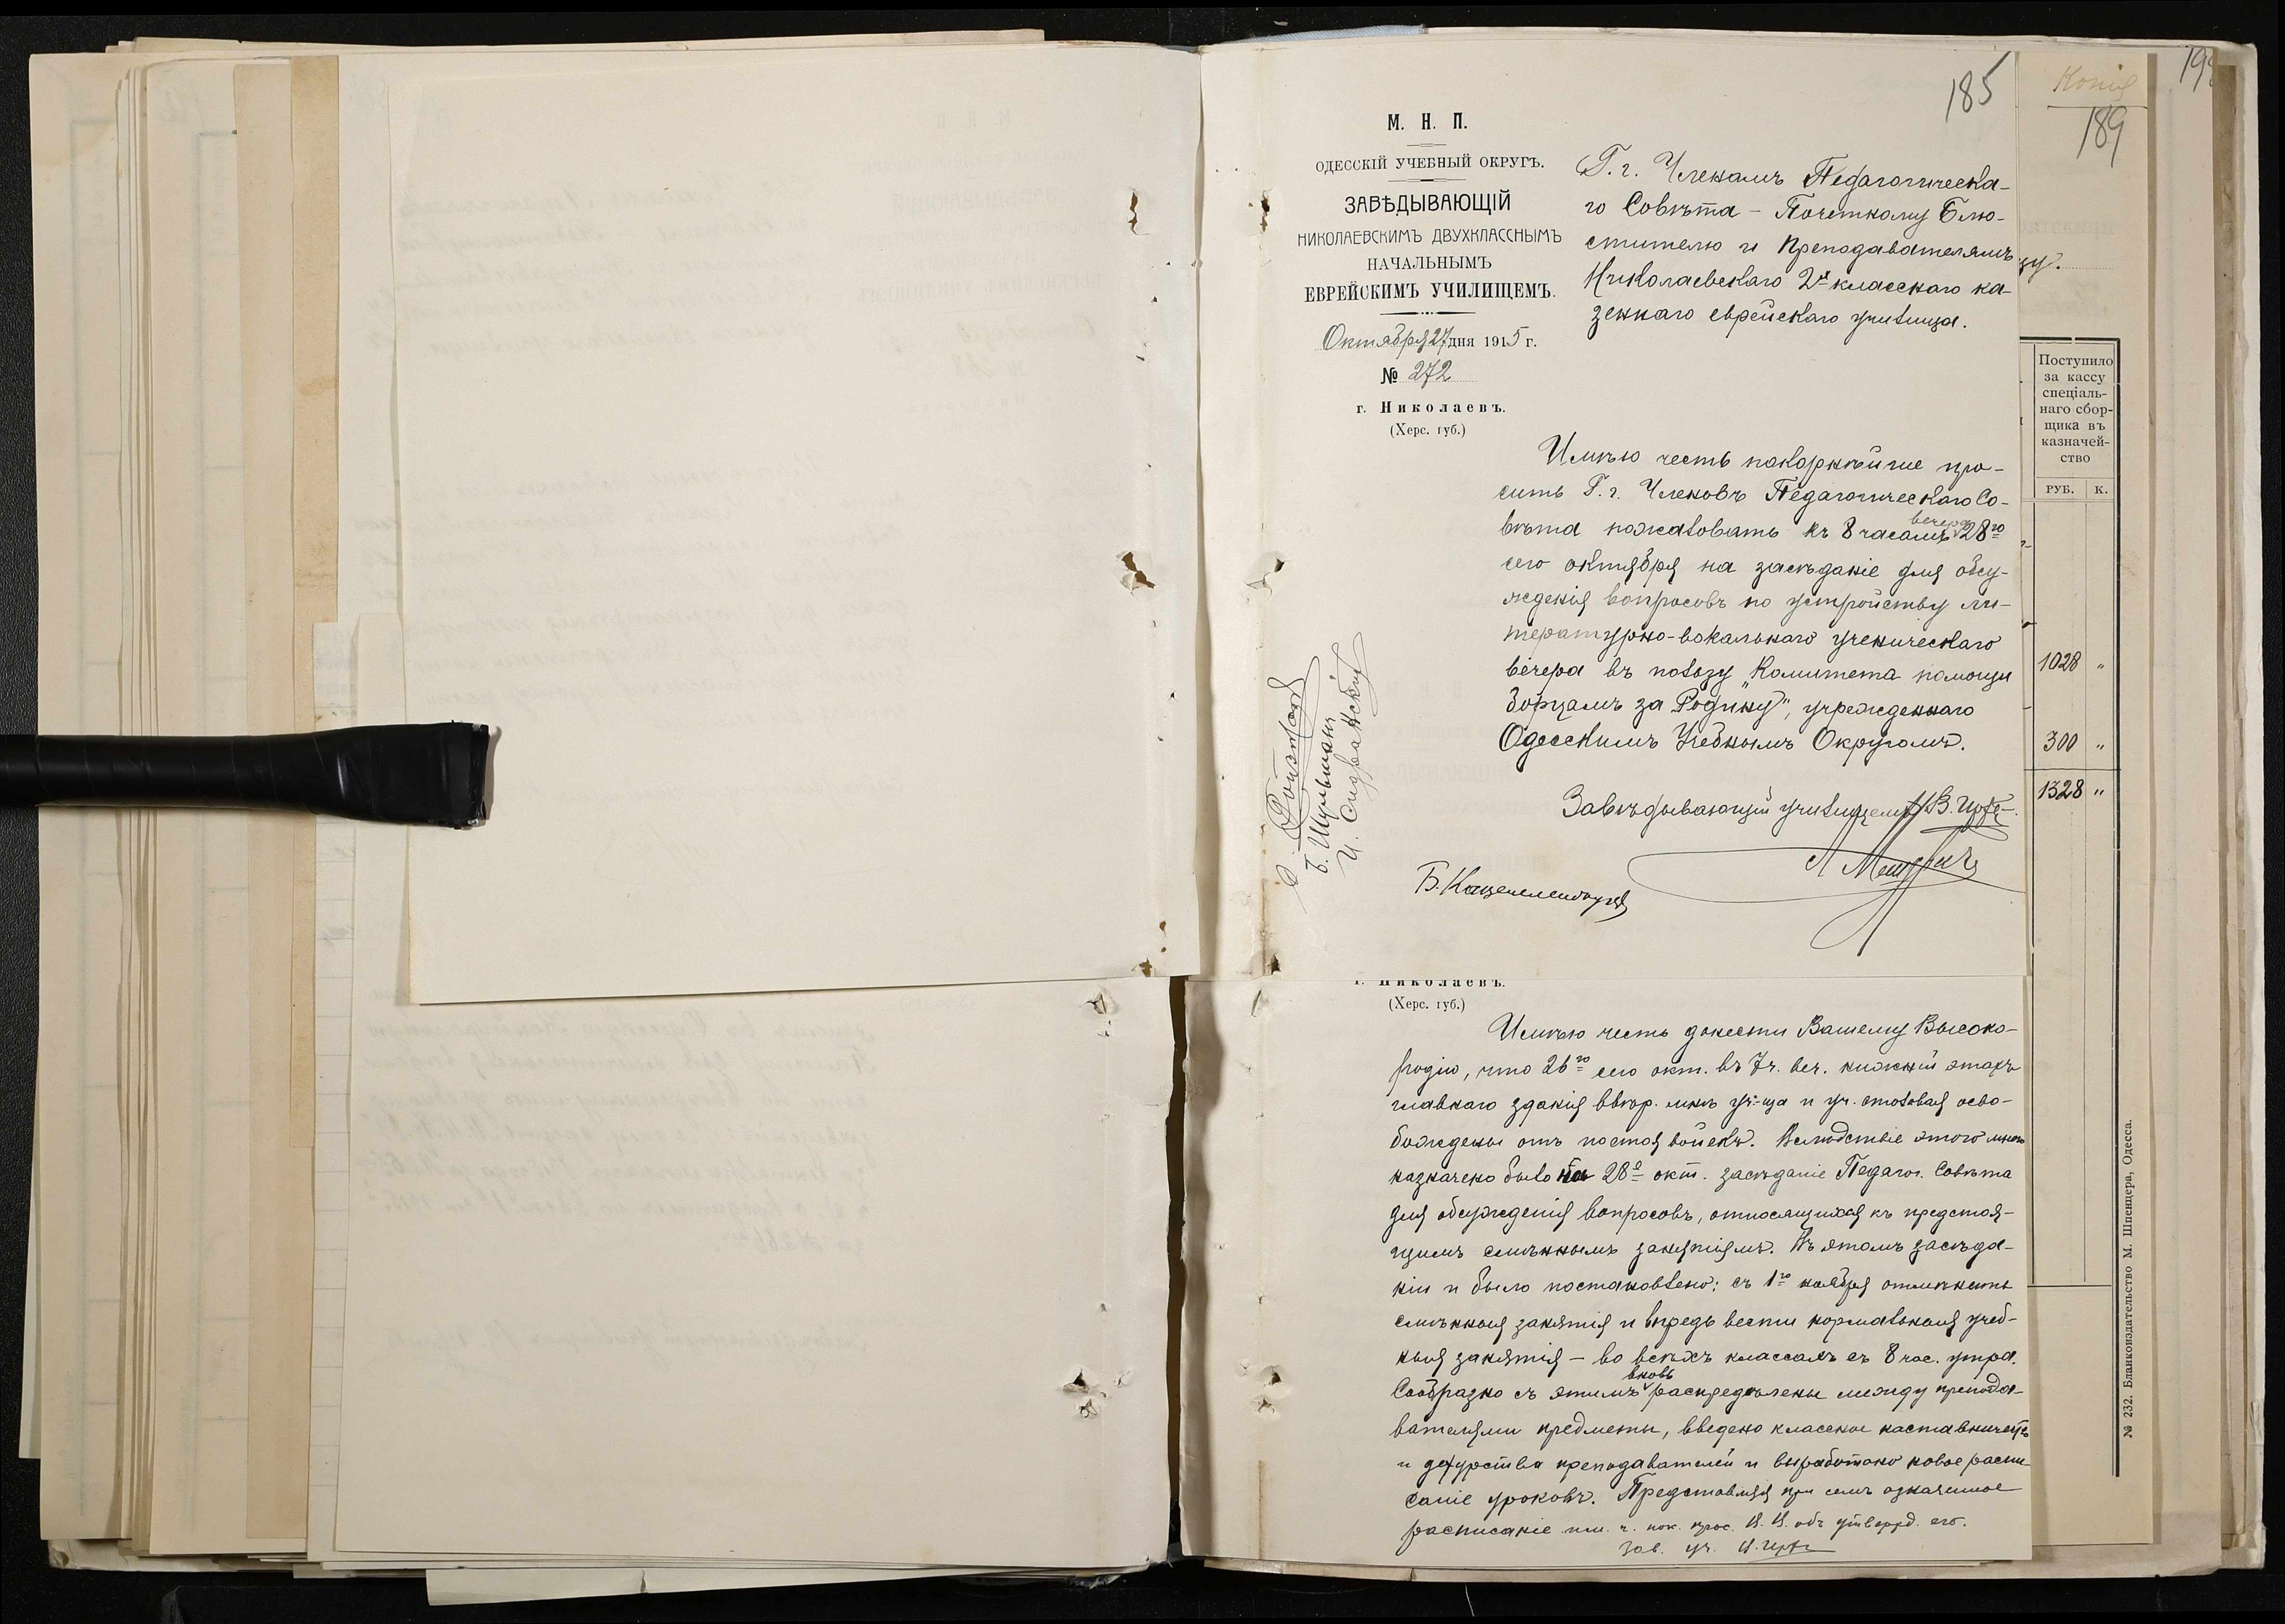 185
М. Н. П.
ОДЕССКІЙ УЧЕБНЫЙ ОКРУГЪ.
ЗАВѢДЫВАЮЩІЙ
НИКОЛАЕВСКИМЪ ДВУХКЛАССНЫМЪ
НАЧАЛЬНЫМЪ
ЕВРЕЙСКИМЪ УЧИЛИЩЕМЪ.
Октября 27 дня 1915 г.
№ 272
г. Николаевъ.
(Херс. губ.)
Г. г. Членамъ Педагогическа-
го Совѣта – Почетному Блю-
стителю и Преподавателямъ
Николаевскаго 2х класснаго ка-
зеннаго еврейскаго училища.
Имѣю честь покорнѣйше про-
сить Г. г. Членовъ Педагогическаго Со-
вѣта пожаловать къ 8 часамъ вечера 28го
сего октября на засѣданіе для обсу-
жденія вопросовъ по устройству ли-
тературно-вокальнаго ученическаго
вечера въ пользу „Комитета помощи
борцамъ за Родину", учрежденнаго
Одесскимъ Учебнымъ Округомъ.
Завѣдывающій училищемъ
Б. Шульманъ
г. Николаевъ.
(Херс. губ.)
Имѣю честь донести Вашему Высоко-
родію, что 26го сего окт. въ 7 ч. веч. нижній этажъ
главнаго зданія ввѣр. мнѣ уч-ща и уч. столовая осво-
бождены отъ постоя войскъ. Вслѣдствіе этого мною
назначено было на 28е окт. засѣданіе Педагог. Совѣта
для обсужденія вопросовъ, относящихся къ предстоя-
щимъ смѣннымъ занятіямъ. Въ этомъ засѣда-
ніи и было постановлено: съ 1го ноября отмѣнить
смѣнныя занятія и впредь вести нормальныя учеб-
ныя занятія – во всѣхъ классахъ съ 8 час. утра.
Сообразно съ этимъ вновь распредѣлены между препода-
вателями предметы, введено классное наставничество
и дежурства преподавателей и выработано новое распи-
саніе уроковъ. Представляя при семъ означенное
расписаніе им. ч. пок. прос. В. В. объ утвержд. его.
Зав. уч.
Копія
189
Поступило
за кассу
спеціаль-
наго сбор-
щика въ
казначей-
ство
РУБ. К.
1028 „
300 „
1328 „
№ 232. Бланкоиздательство М. Шпенцера, Одесса.